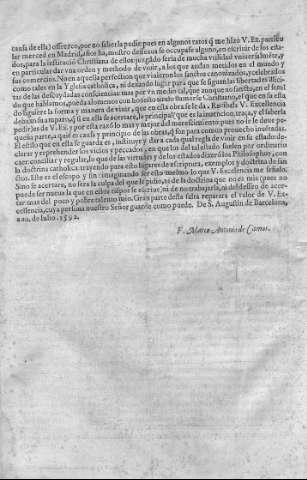 causa de ella) ofrezco, por no saberla pedir pues en algunos ratos q̃ me hizo V. Ex. particu
lar merced en Madrid, años ha, mostro desseos se ocupasse alguno, en escriuir de los esta-
dos, para la instrucion Christiana de ellos juzgãdo seria de mucha vtilidad vniuersal al mũdo, y
en particular dar vna orden y methodo de viuir, a los que andan metidos en el mundo y
sus comercios. No en aquella perfectiõ que viuieron los sanctos canonizados, y celebrados
como tales en la Yglesia catholica, ni dexando lugar para que se siguan las libertades illici-
tas de las descuydadas consciencias: mas por vn medio tal, que aunque no sancto, en el sent
do que hablamos, pueda lo menos con honesto titulo llamarse Christiano, el que en su esta
do siguiere la forma y manera de viuir, que en esta obra se le da. Recibala V. Excellencia
debaxo su amparo, si en ella se acertare, lo principal que es la instrucion, traça, y el saberla
pedir les de V. Ex. y por esta razõ lo mas y mejor del merescimiento pues no se le deue pe-
queña parte, a quiẽ es causa y principio de las obras, si son para comun prouecho instituidas.
El estilo que en ella se guarda es, instituyr y dar a cada qual regla de viuir en su estado: de-
clarar y reprehender los vicios y peccados, en que los del tal estado suelen por ordinario
caer: conciliar y regular, lo que de las virtudes y de los estados dixerõ los Philosophos, con
la doctrina catholica: trayendo para esto lugares de escriptura, exemplos y doctrina de san
ctos. Este es el escopo y fin: imaginando ser esto mesmo lo que V. Excellencia me señalo.
Sino se acertare, no sera la culpa del que lo pidio, ni de la doctrina que no es mia (pues no
puede ser menos la que en estos cuerpos se escriue, ni de no trabajarla, ni del desseo de acer-
tar mas del poco y pobre talento mio. Gran parte desta falta reparara el valor de V. Ex-
cellencia, cuya persona nuestro Señor guarde como puede. De S. Augustin de Barcelona,
a 20. de Iulio. 1592.
F. Marco Antonio de Camos.